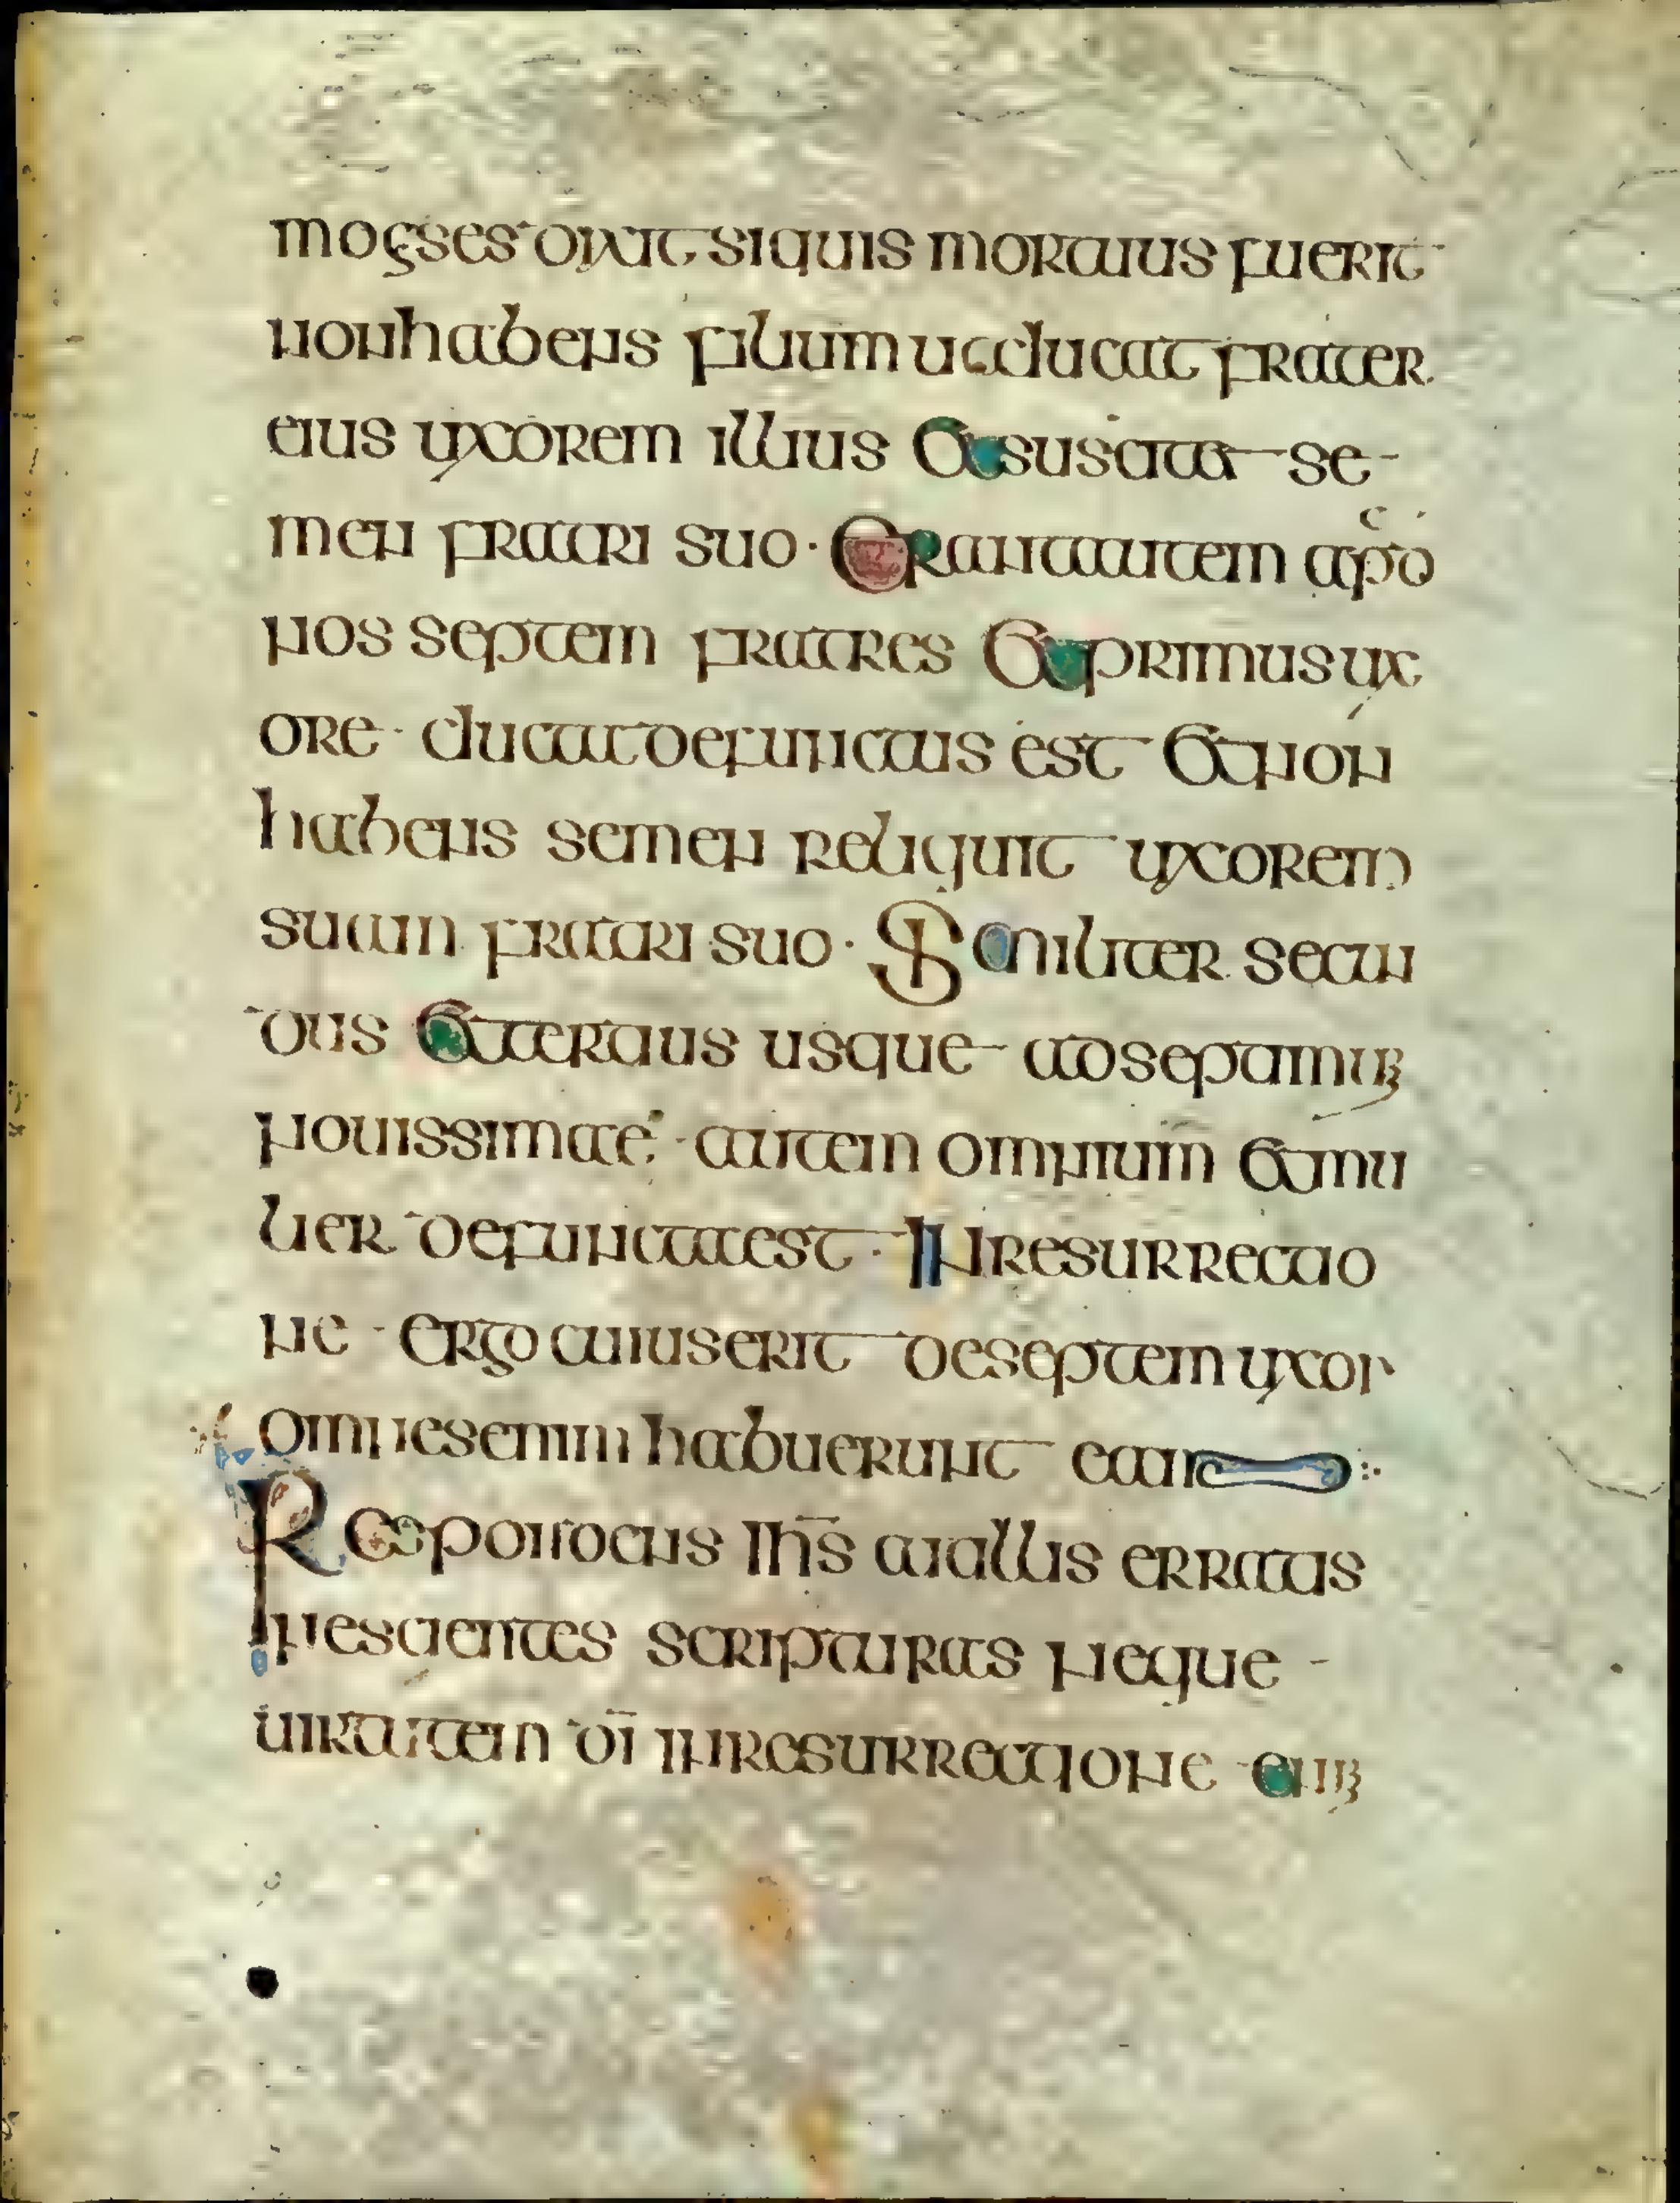 moyses dixit si quis mortuus fuerit
non habens filium ut ducat frater
eius uxorem illius et suscitet se
men fratri suo · Erant autem apd
nos septem fratres et primus ux
ore · ducta defunctus est et non
habens semen reliquit uxorem
suam fratri suo · Similiter secun
dus et tertius usque ad septimum
nouissimae · autem omnium et mu
lier defuncta est · In resurrectio
ne · ergo cuius erit de septem uxor
omnes enim habuerunt eam
Respondens ihs̄ ait illis erratis
nescientes scripturas neque
uirtutem dī in resurrectione enim